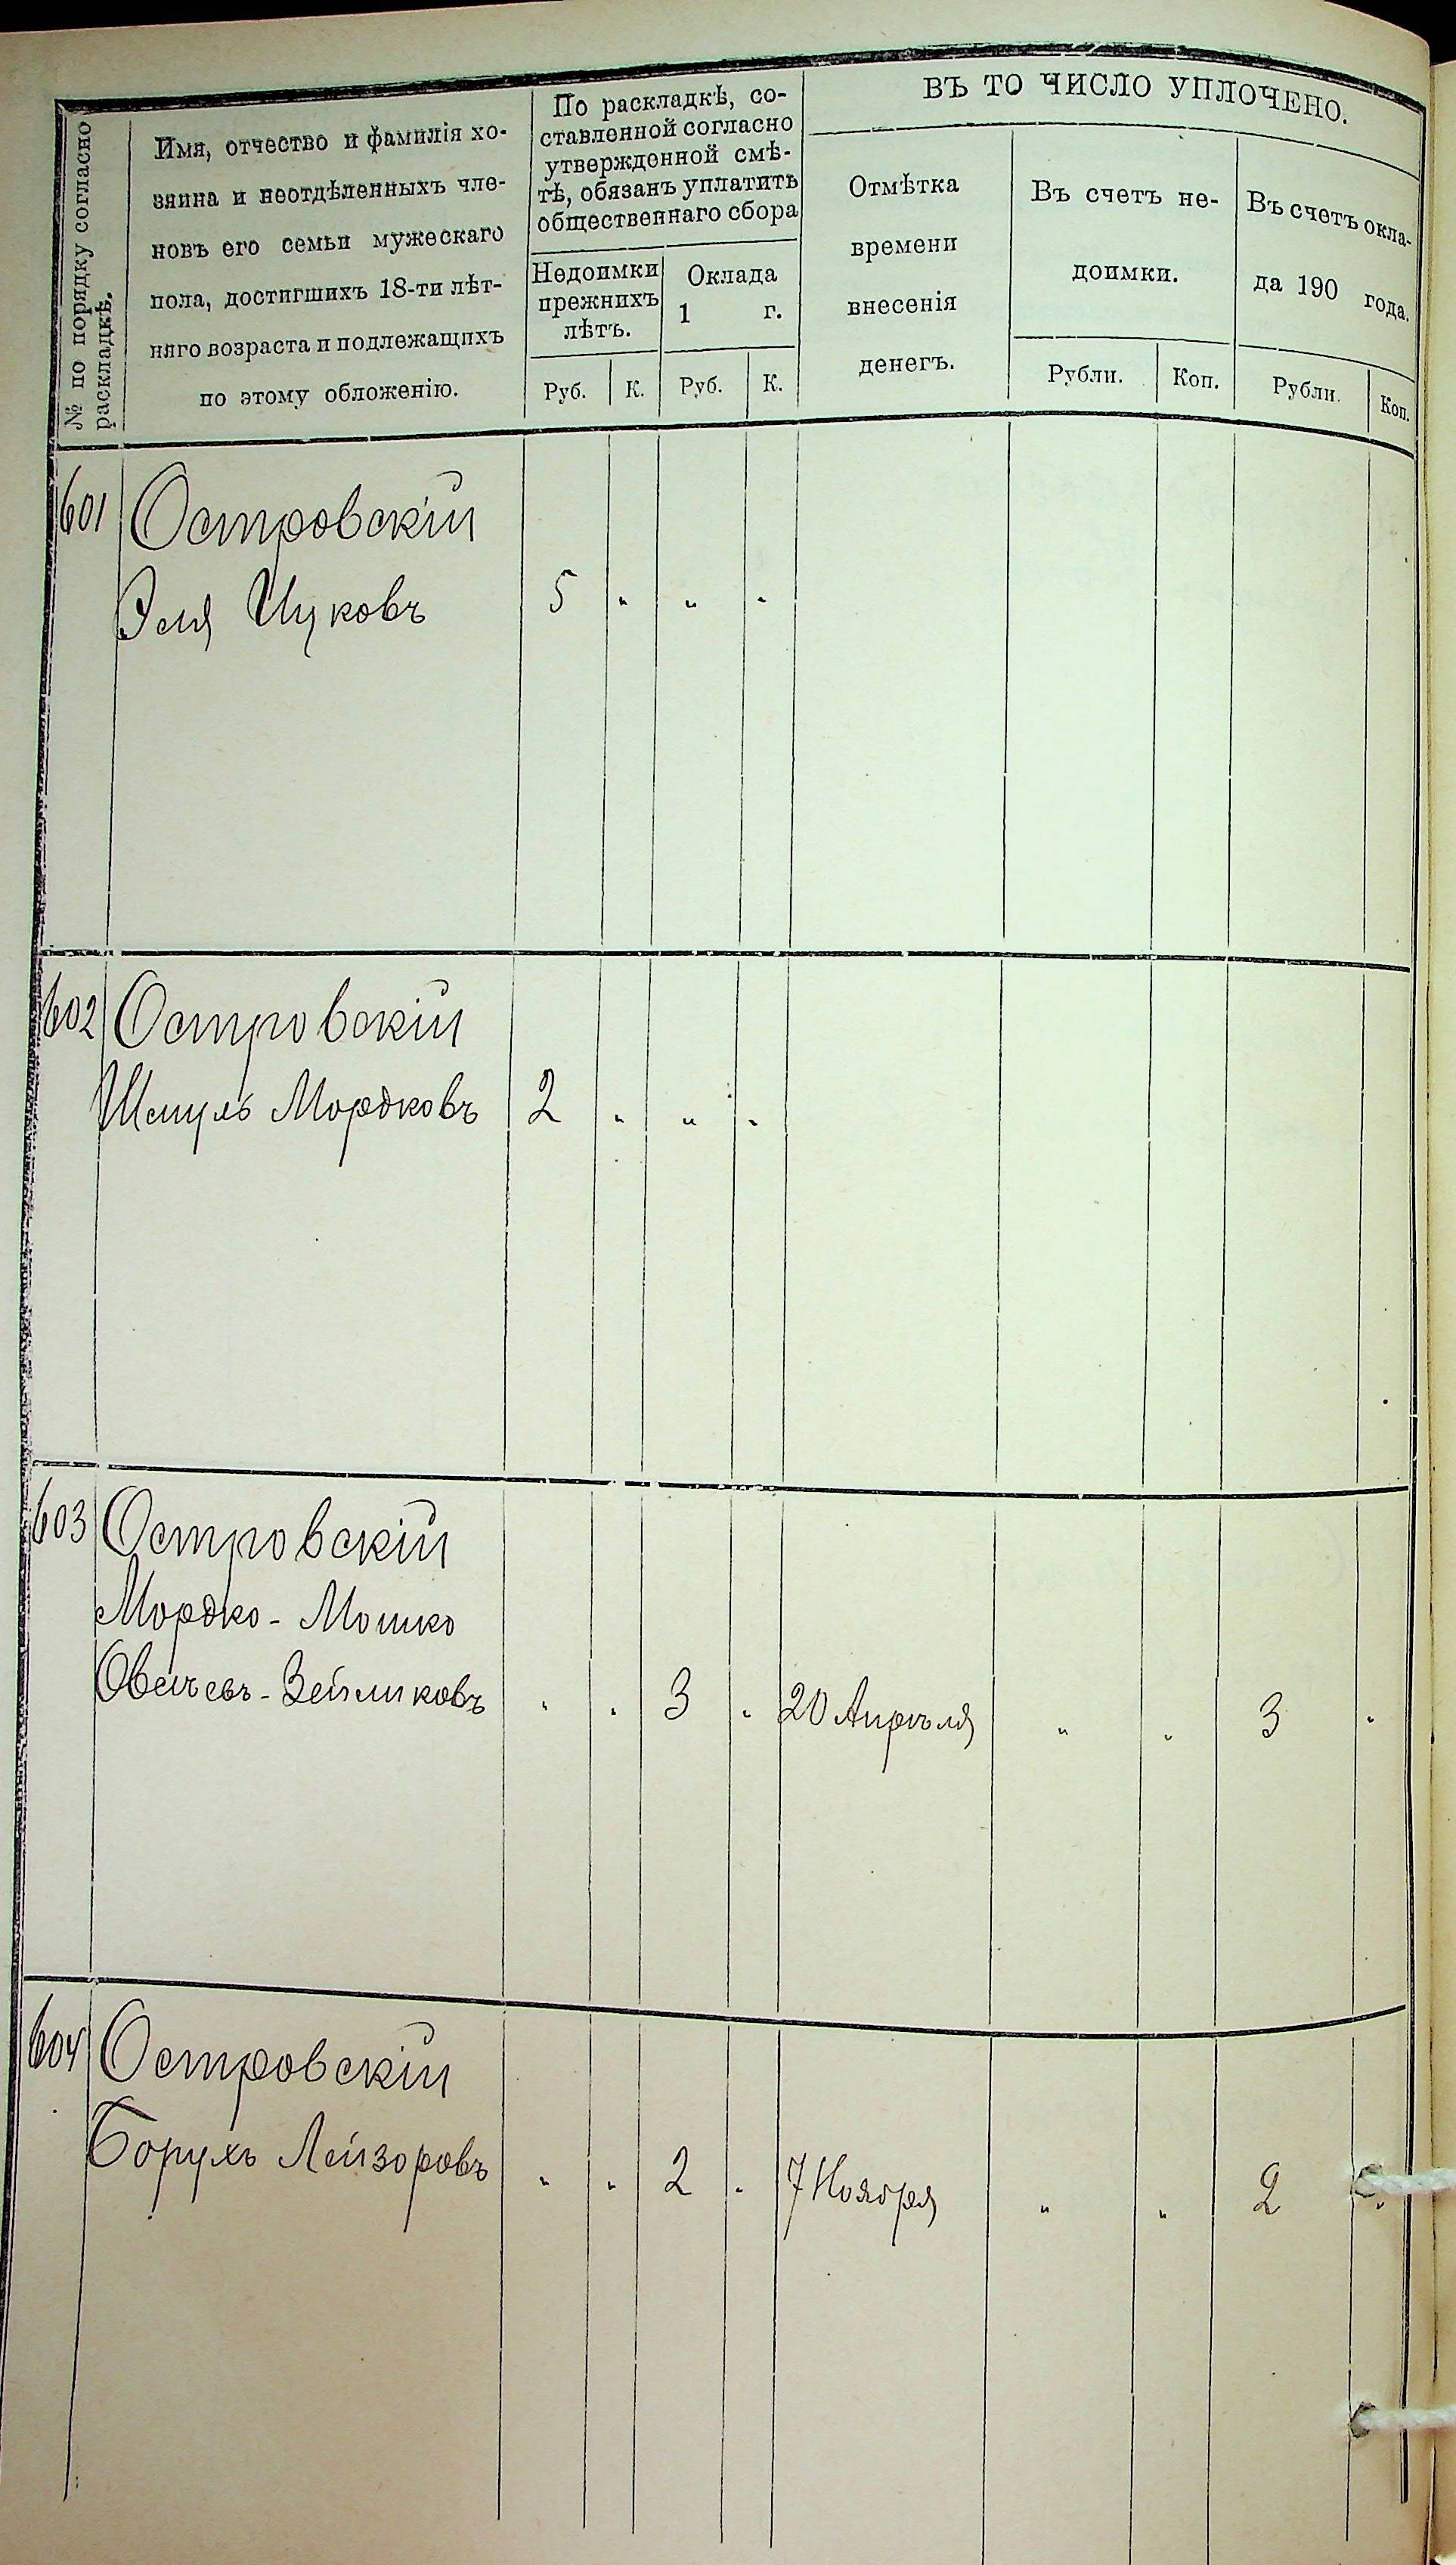 № по порядку согласно
раскладкѣ.
Имя, отчество и фамилія хо-
зяина и неотдѣленныхъ чле-
новъ его семьи мужескаго
пола, достигшихъ 18-ти лѣт-
няго возраста и подлежащихъ
по этому обложенію.
По раскладкѣ, со-
ставленной согласно
утвержденной смѣ-
тѣ, обязанъ уплатить
общественнаго сбора
Недоимки
прежнихъ
лѣтъ.
Руб. К.
Оклада
1 г.
Руб. К.
ВЪ ТО ЧИСЛО УПЛОЧЕНО.
Отмѣтка
времени
внесенія
денегъ.
Въ счетъ не-
доимки.
Рубли. Коп.
Въ счетъ окла-
да 190 года.
Рубли. Коп.
601 Островскій
Эля Ицковъ 5 " " "
602 Островскій
Шмуль Мордковъ 2 " " "
603 Островскій
Мордко-Мошко
Овсѣевъ-Зейликовъ " " 3 " 20 Апрѣля " " 3 "
604 Островскій
Борухъ Лейзоровъ " " 2 " 7 Ноября " " 2 "